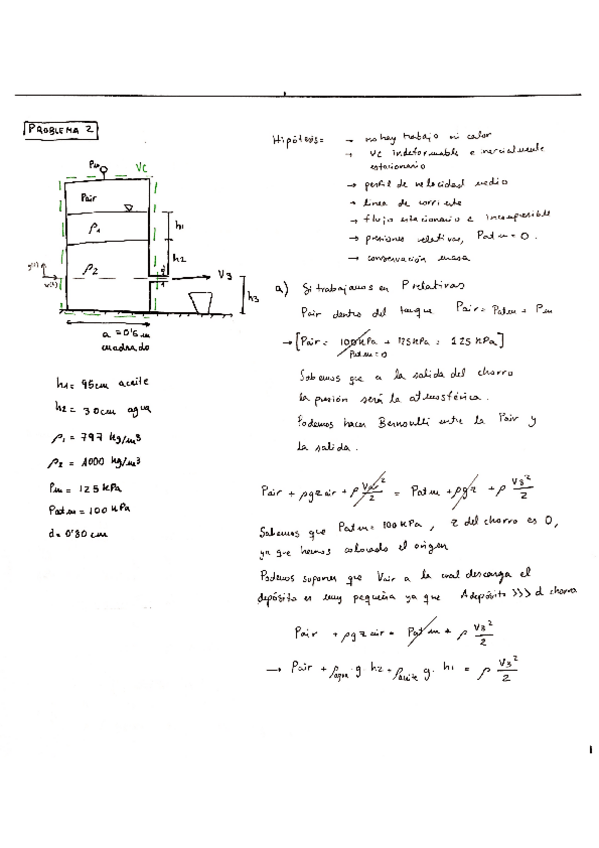 PROBLEMA 2
Hipótesis: → no hay trabajo ni calor
→ VC indeformable e inercialmente
estacionario
→ perfil de velocidad medio
→ linea de corriente
→ flujo estacionario e incompresible
→ presiones relativas, Patm = 0.
→ conservación masa
Pm
VC
Pair
ρ1
h1
ρ2
h2
V3
h3
a = 0'5 m
cuadrado
h1 = 95cm aceite
h2 = 30cm agua
ρ1 = 797 kg/m3
ρ2 = 1000 kg/m3
Pm = 125 kPa
Patm = 100 kPa
d = 0'80 cm
a) Si trabajamos en P relativas
Pair dentro del tanque Pair = Patm + Pm
→ [Pair = 100 kPa + 125 kPa = 125 kPa]
Patm=0
Sabemos que a la salida del chorro
la presión será la atmosférica.
Podemos hacer Bernoulli entre la Pair y
la salida.
Pair + ρgzair + ρ Vair²/2 = Patm + ρgz + ρ V3²/2
Sabemos que Patm = 100 kPa, z del chorro es 0,
ya que hemos colocado el origen
Podemos suponer que Vair a la cual descarga el
depósito es muy pequeña ya que Adepósito >>> d chorro
Pair + ρgzair = Patm + ρ V3²/2
→ Pair + ρagua · g h2 + ρaceite g · h1 = ρ V3²/2
1